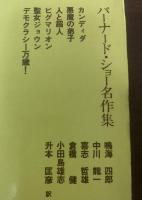 バーナード・ショー名作集
カンディダ
悪魔の弟子
人と超人
ピグマリオン
聖女ジョウン
デモクラシー万歳！
鳴海 四郎
中川 龍一
喜志 哲雄
倉橋 健
小田島雄志
升本 匡彦 訳